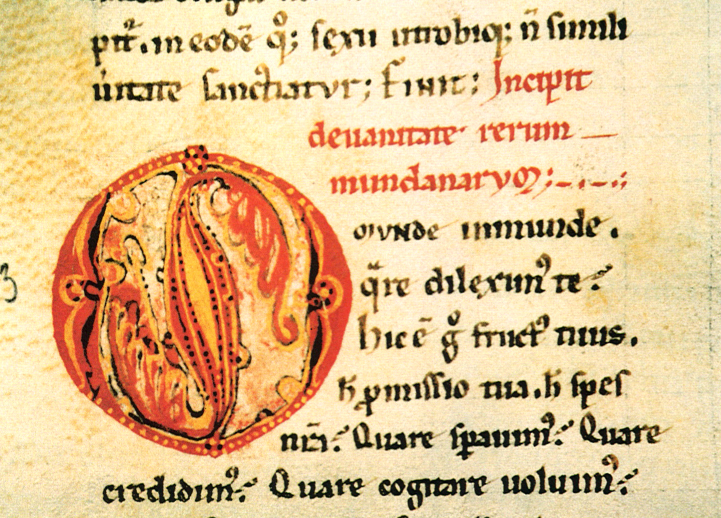 ptr̄. in eodē q̊; sexu utrobiq; n̄ simili
uirtute sanctiatur; Finit; Incipit
de uanitate rerum
mundanarum;
O Munde inmunde.
q̄re dileximꝰ te?
hic ē g̊ fructꝰ tuus.
h̄ ꝓmissio tua. h̄ spes
nr̄a? Quare sperauimꝰ? Quare
credidimꝰ? Quare cogitare uoluimꝰ?